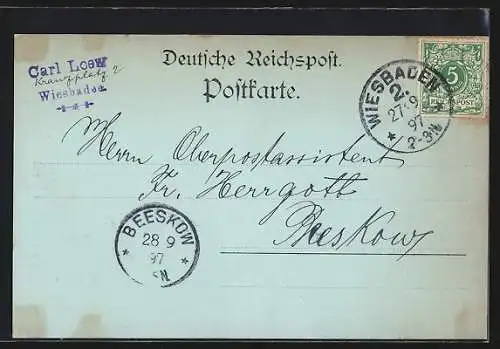 Carl Loew
Kranzplatz 2
Wiesbaden
Deutsche Reichspost.
Postkarte.
WIESBADEN
2.
27 9
97
2-3N
5
Herrn Oberpostassistent
Fr. Herrgott
Beeskow
BEESKOW
28 9
97